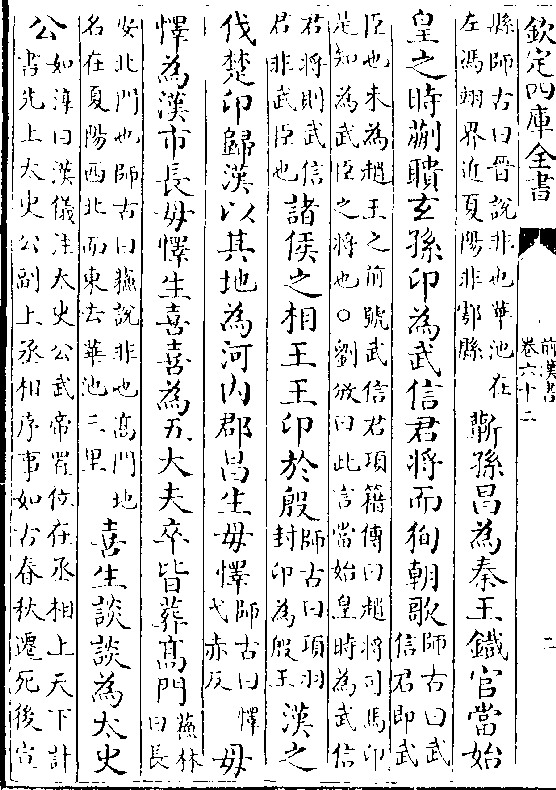 欽定四庫全書
前漢書
卷六十二
二
縣師古曰晉說非也華池在
左馮翊界近夏陽非鄠縣
靳孫昌為秦王鐵官當始
皇之時蒯聵玄孫卬為武信君將而狥朝歌
師古曰武
信君即武
臣也未為趙王之前號武信君項籍傳曰趙將司馬卬
是知為武臣之將也○劉攽曰此言當始皇時為武信
君將則武信
君非武臣也
諸侯之相王王卬於殷
師古曰項羽
封卬為殷王
漢之
伐楚卬歸漢以其地為河内郡昌生毋懌
師古曰懌
弋赤反
毋
懌為漢市長毋懌生喜喜為五大夫卒皆葬髙門
蘇林
曰長
安北門也師古曰蘇說非也髙門地
名在夏陽西北而東去華池三里
喜生談談為太史
公
如淳曰漢儀注太史公武帝置位在丞相上天下計
書先上太史公副上丞相序事如古春秋遷死後宣